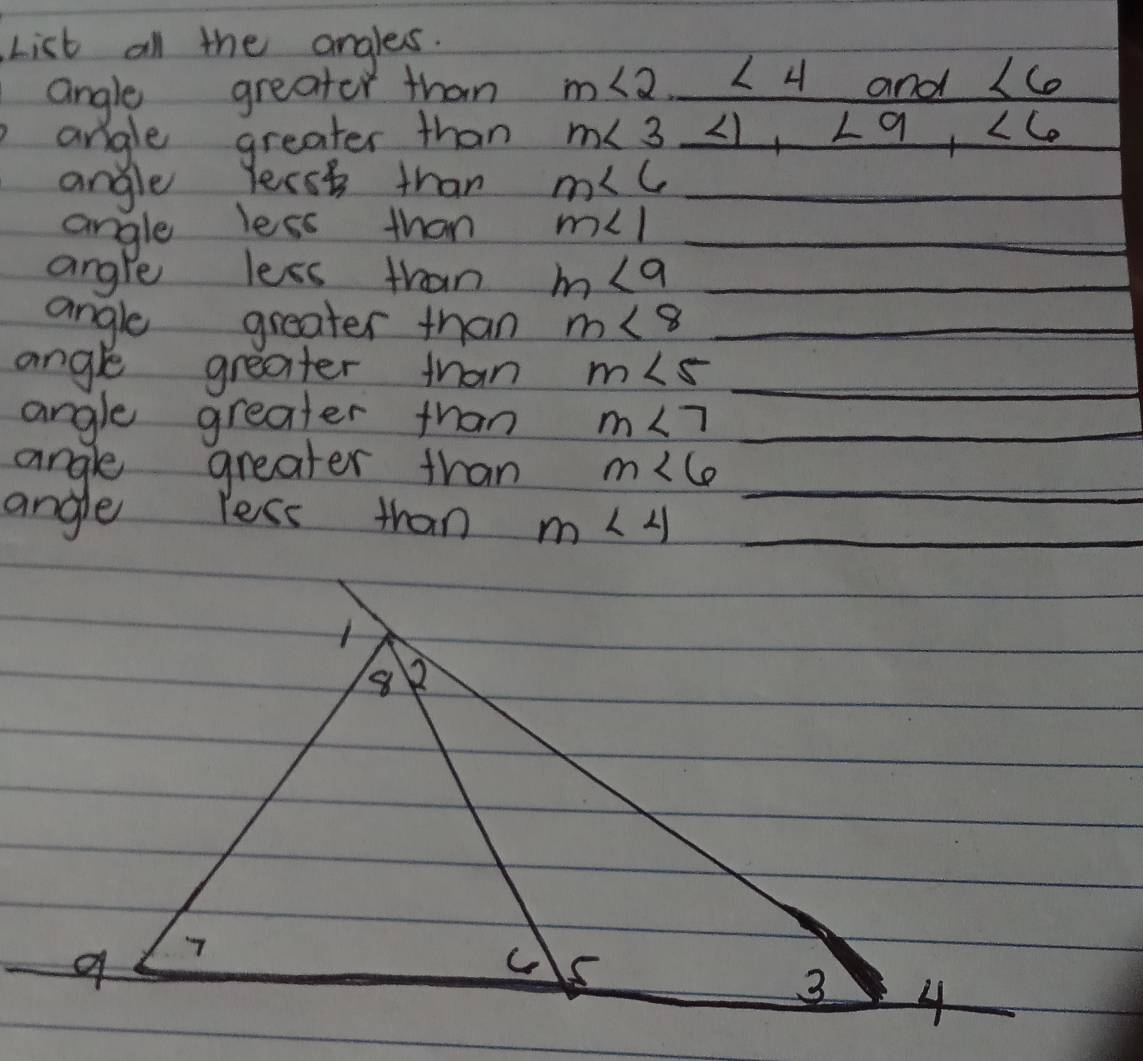 List all the angles.
angle greater than m<2 <4 and <6
angle greater than m<3 <1, <9, <6
angle less than m<6
angle less than m<1
angle less than m<9
angle greater than m<8
angle greater than m<5
angle greater than m<7
angle greater than m<6
angle less than m<4
1
8 2
9 7 6 5 3 4